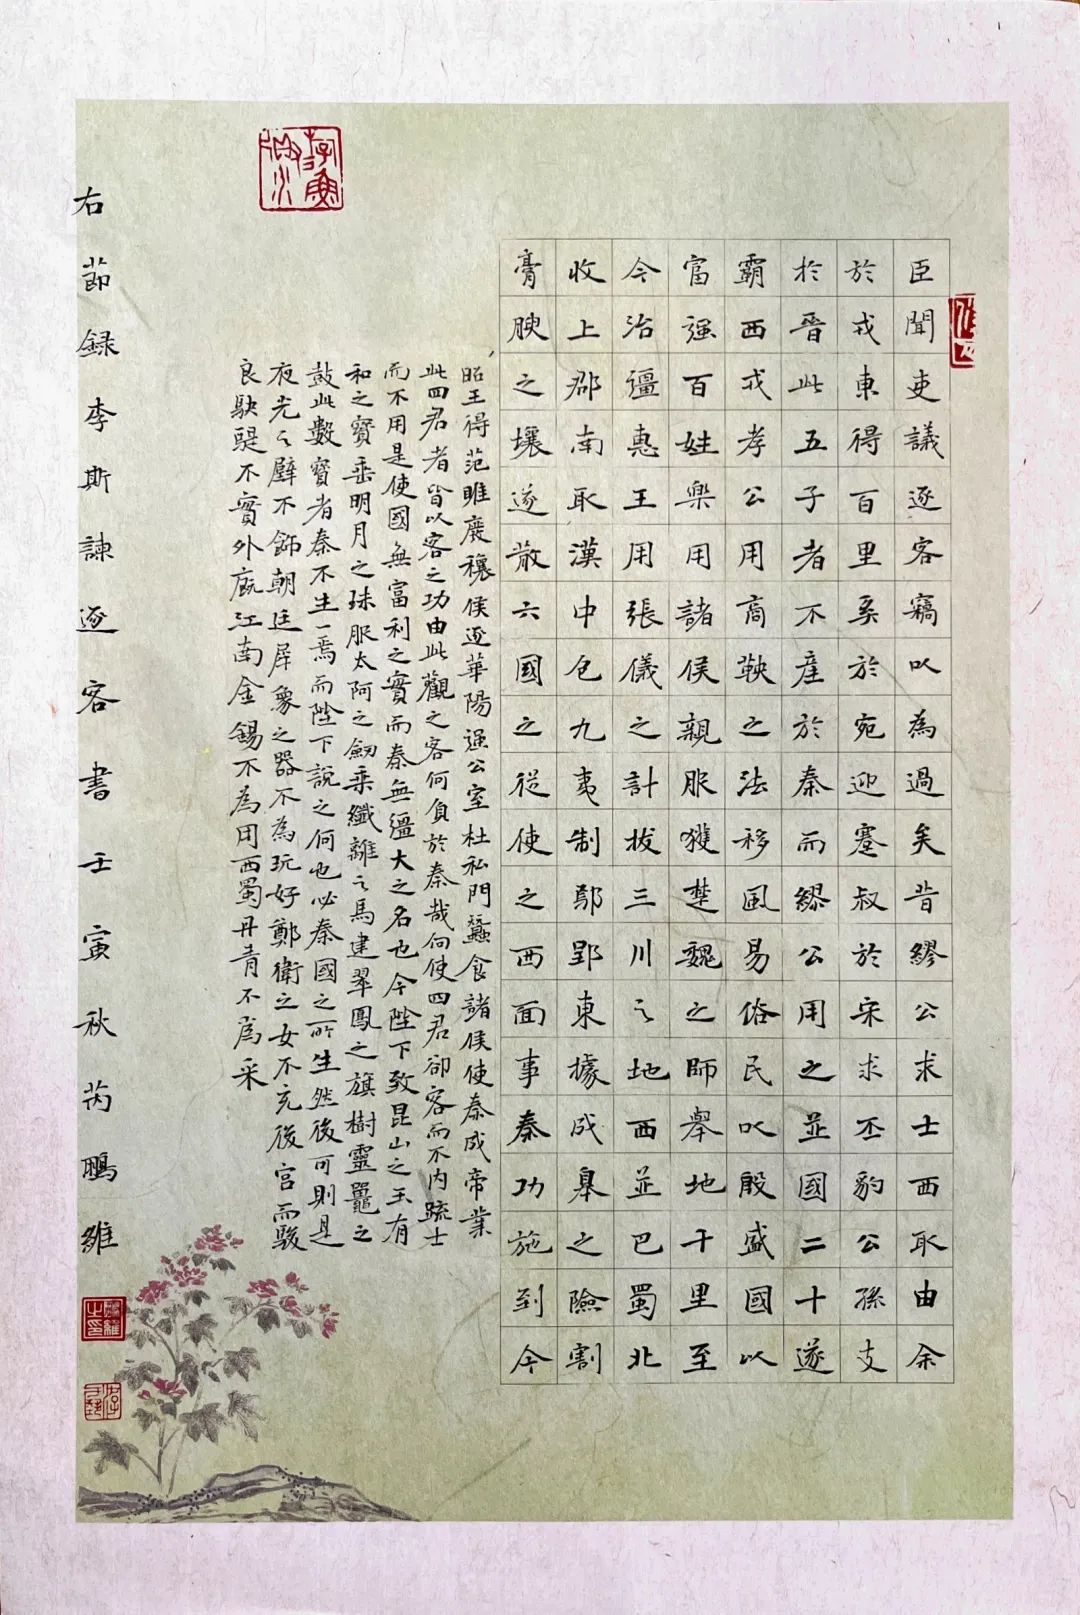 臣聞吏議逐客竊以為過矣昔繆公求士西取由余
於戎東得百里奚於宛迎蹇叔於宋求丕豹公孫支
於晉此五子者不產於秦而繆公用之並國二十遂
霸西戎孝公用商鞅之法移風易俗民以殷盛國以
富強百姓樂用諸侯親服獲楚魏之師舉地千里至
今治彊惠王用張儀之計拔三川之地西並巴蜀北
收上郡南取漢中包九夷制鄢郢東據成皋之險割
膏腴之壤遂散六國之從使之西面事秦功施到今
昭王得范雎廢穰侯逐華陽強公室杜私門蠶食諸侯使秦成帝業
此四君者皆以客之功由此觀之客何負於秦哉向使四君卻客而不內疏士
而不用是使國無富利之實而秦無彊大之名也今陛下致昆山之玉有
和之寶垂明月之珠服太阿之劒乘纖離之馬建翠鳳之旗樹靈鼉之
鼓此數寶者秦不生一焉而陛下說之何也必秦國之所生然後可則是
夜光之璧不飾朝廷犀象之器不為玩好鄭衛之女不充後宮而駿
良駃騠不實外廄江南金錫不為用西蜀丹青不為采
右節録李斯諫逐客書壬寅秋芮鵬雒